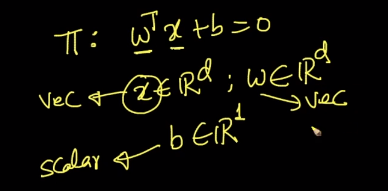 π: wᵀx + b = 0
vec ← x ∈ ℝᵈ ; w ∈ ℝᵈ → vec
scalar ← b ∈ ℝ¹